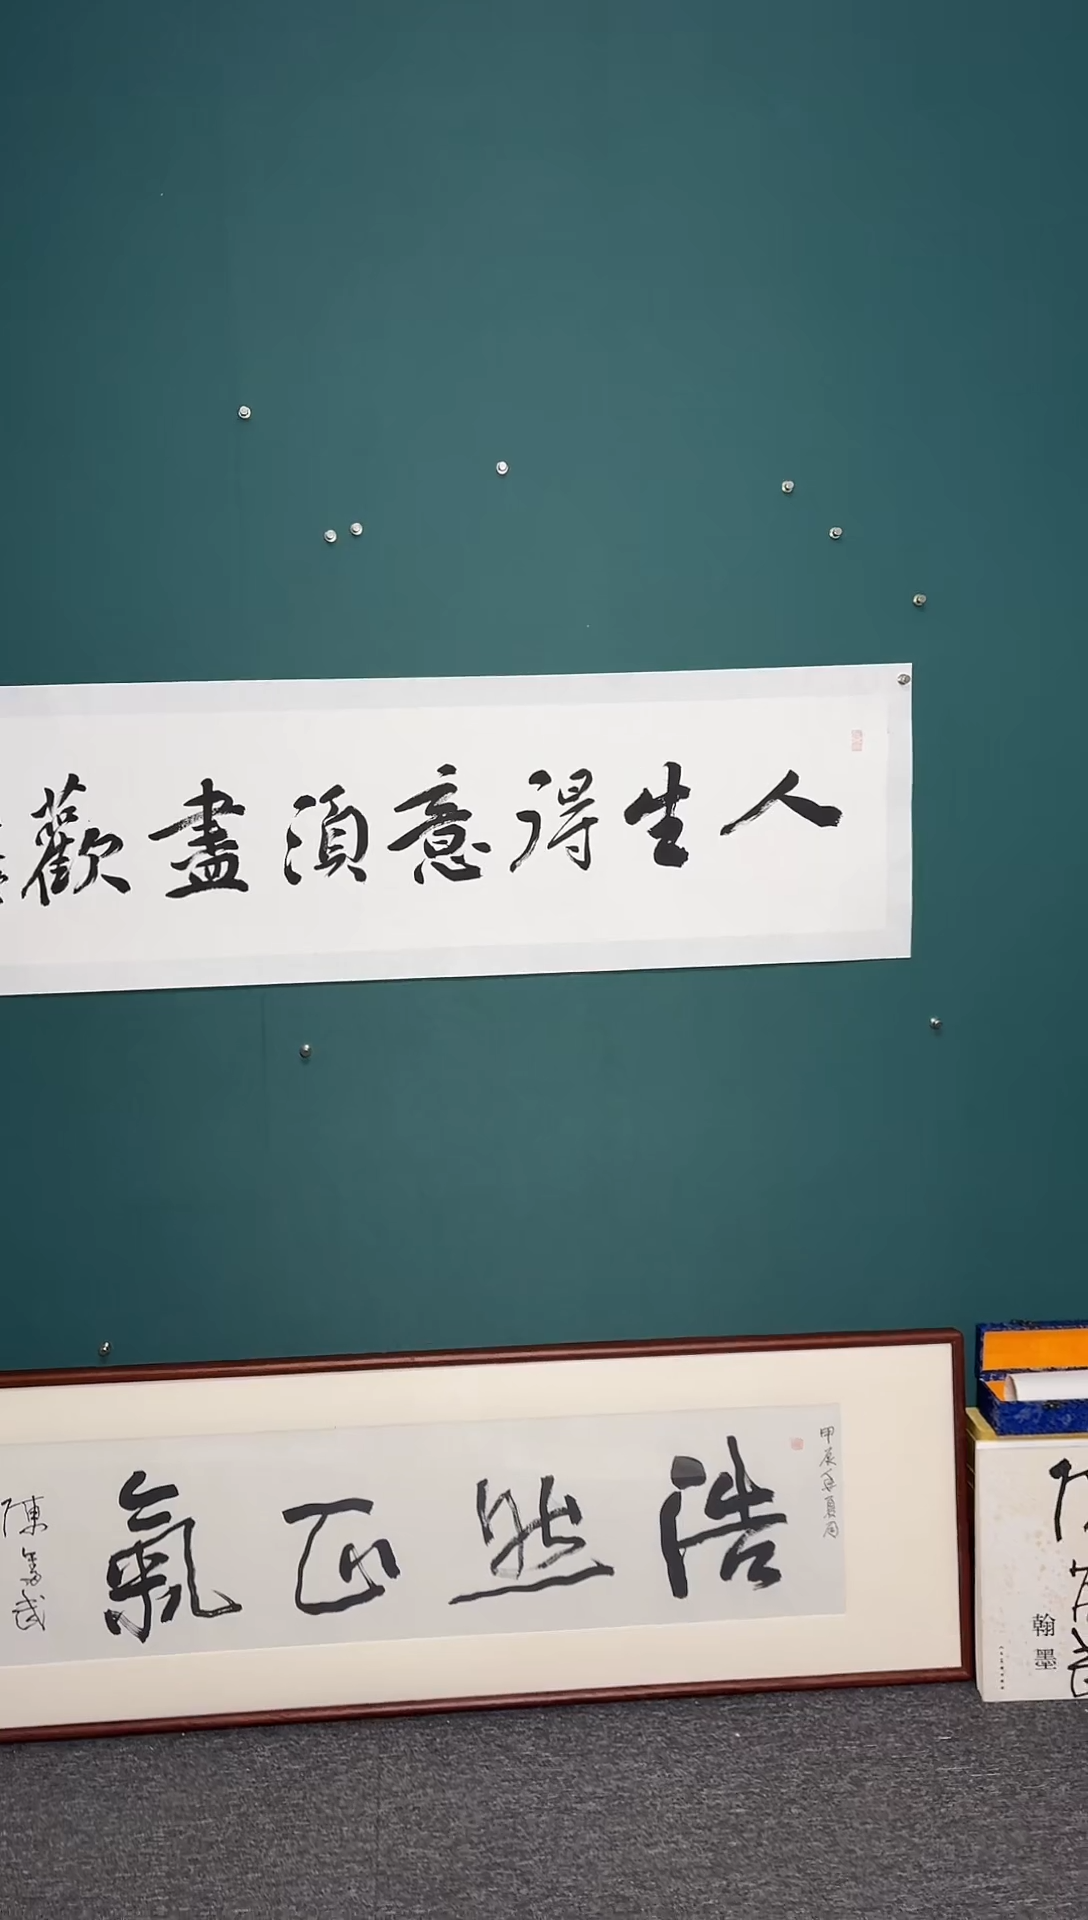 人生得意須盡歡
浩然正氣
甲辰年夏月
陳
翰墨